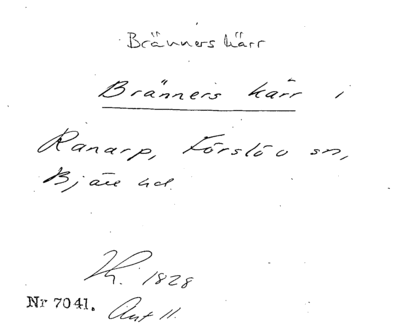 Bränners kärr
Bränners kärr i
Ranarp, Förslöv sn,
Bjäre hd
1828
Nr 7041. Akt 11.